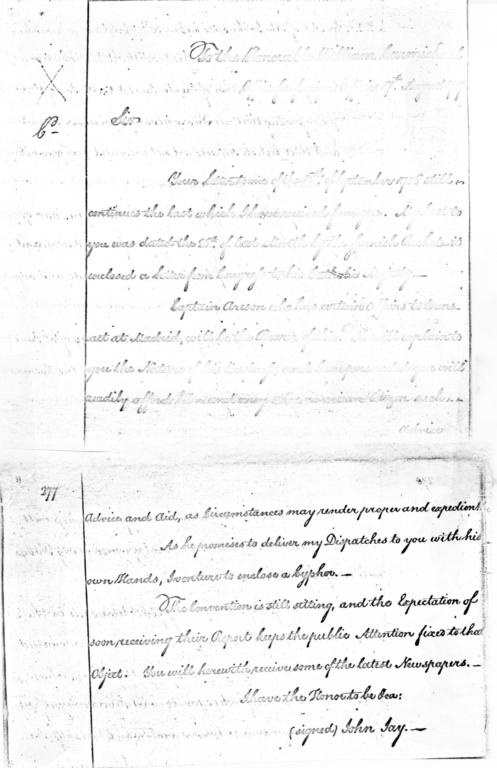 To the Honorable William Carmichael
Office for foreign Affairs 17th August 87
Cd
Sir
Your Letter to me of the of September 1786 still
continues the last which I have received from you. My last to
you was dated the 25th of last Month by the Spanish Packet. it
enclosed a Letter from Congress to his Catholic Majesty.—
Captain who has certain Affairs to trans-
-act at Madrid, will be the Bearer of this. He will explain to
you the Nature of his Business and I am persuaded you will
readily afford him and every other american Citizen such
Advice
277
Advice and Aid, as Circumstances may render proper and expedient.
As he promises to deliver my Dispatches to you with his
own Hands, I venture to enclose a Cypher.—
The Convention is still sitting, and the Expectation of
soon receiving their Report keeps the public Attention fixed to that
Object. You will herewith receive some of the latest Newspapers.—
I have the Honor to be &ca:
(signed) John Jay.—